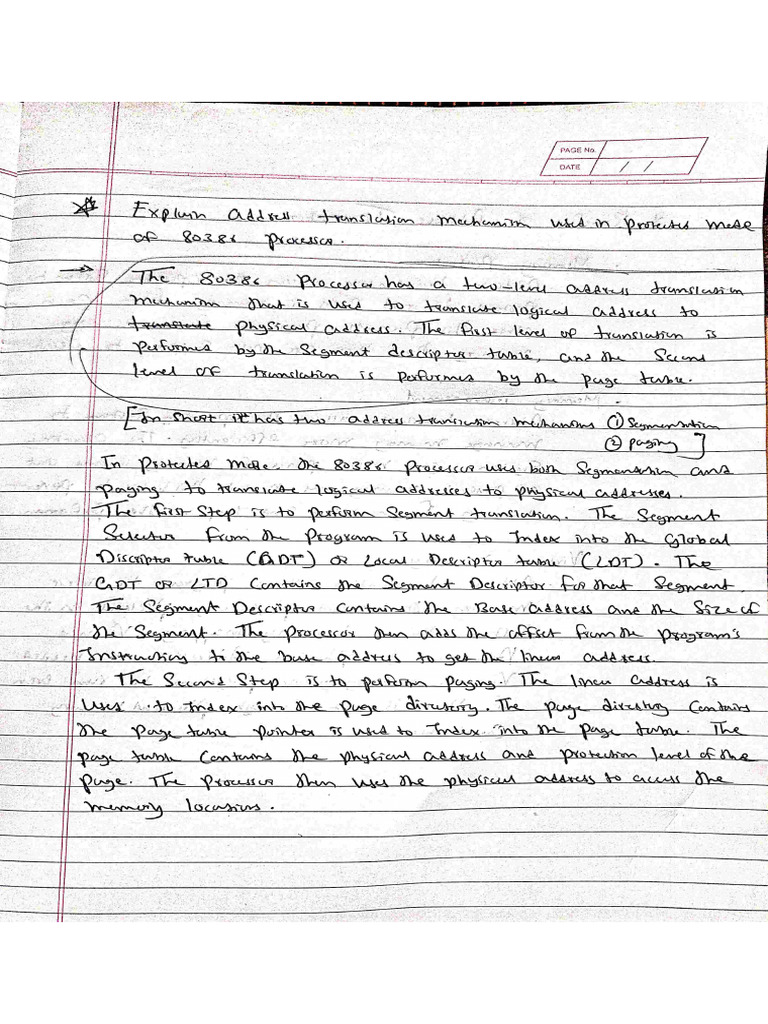 PAGE No.
DATE / /
Explain address translation mechanism used in protected mode
of 80386 processor.
→ The 80386 Processor has a two-level address translation
mechanism that is used to translate logical address to
translate physical address. The first level of translation is
performed by the segment descriptor table, and the second
level of translation is performed by the page table.
[In short it has two address translation mechanisms ① Segmentation
② paging ]
In Protected mode, the 80386 Processor uses both Segmentation and
paging to translate logical addresses to physical addresses.
The first Step is to perform Segment translation. The Segment
Selector from the Program is used to Index into the Global
Discriptor table (GDT) or Local Descriptor table (LDT). The
GDT or LTD Contains the Segment Descriptor for that Segment.
The Segment Descriptor Contains the Base address and the Size of
the Segment. The Processor then adds the offset from the program's
Instruction to the base address to get the linear address.
The Second Step is to perform paging. The linear address is
used to Index into the page directory. The page directory Contains
the page table pointer is used to Index into the page table. The
page table Contains the physical address and protection level of the
page. The Processor then uses the physical address to access the
memory locations.